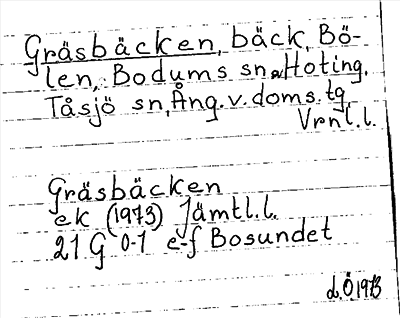 Gräsbäcken, bäck, Bö-
len, Bodums sn o. Hoting,
Tåsjö sn, Ång. v. doms. tg,
Vrnl.l.
Gräsbäcken
ek (1973) Jämtl.l.
21 G 0-1 e-f Bosundet
d. Ö. 1973